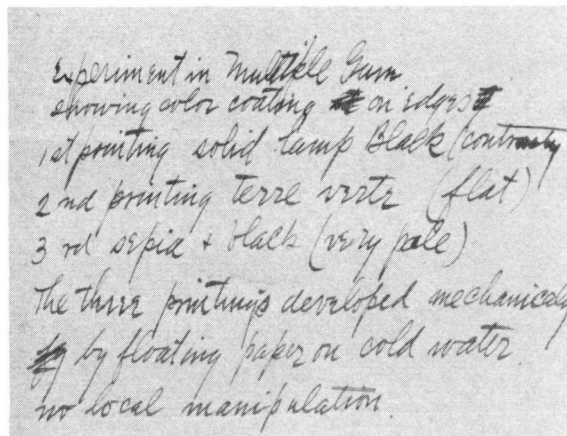 Experiment in Multiple Gum
showing color coating on edges
1st printing solid lamp Black (contrasty
2nd printing terre verte (flat)
3rd sepia + black (very pale)
The three printings developed mechanicaly
by floating paper on cold water.
no local manipulation.